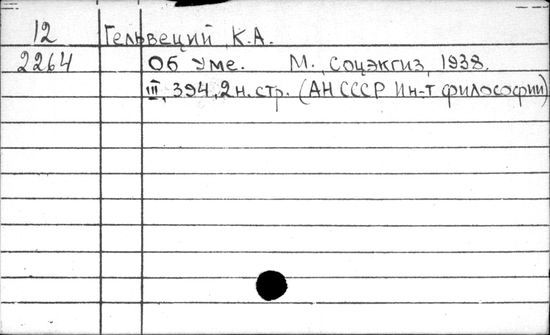 12 Гельвеций К.А.
2264 Об уме. М., Соцэкгиз, 1938.
III, 394, 2 н. стр. (АН СССР Ин-т философии)